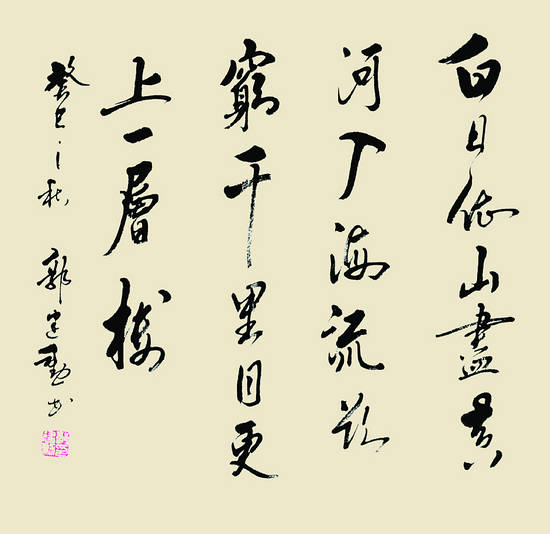 白日依山盡黃
河入海流欲
窮千里目更
上一層樓
癸巳之秋 郭建勳书